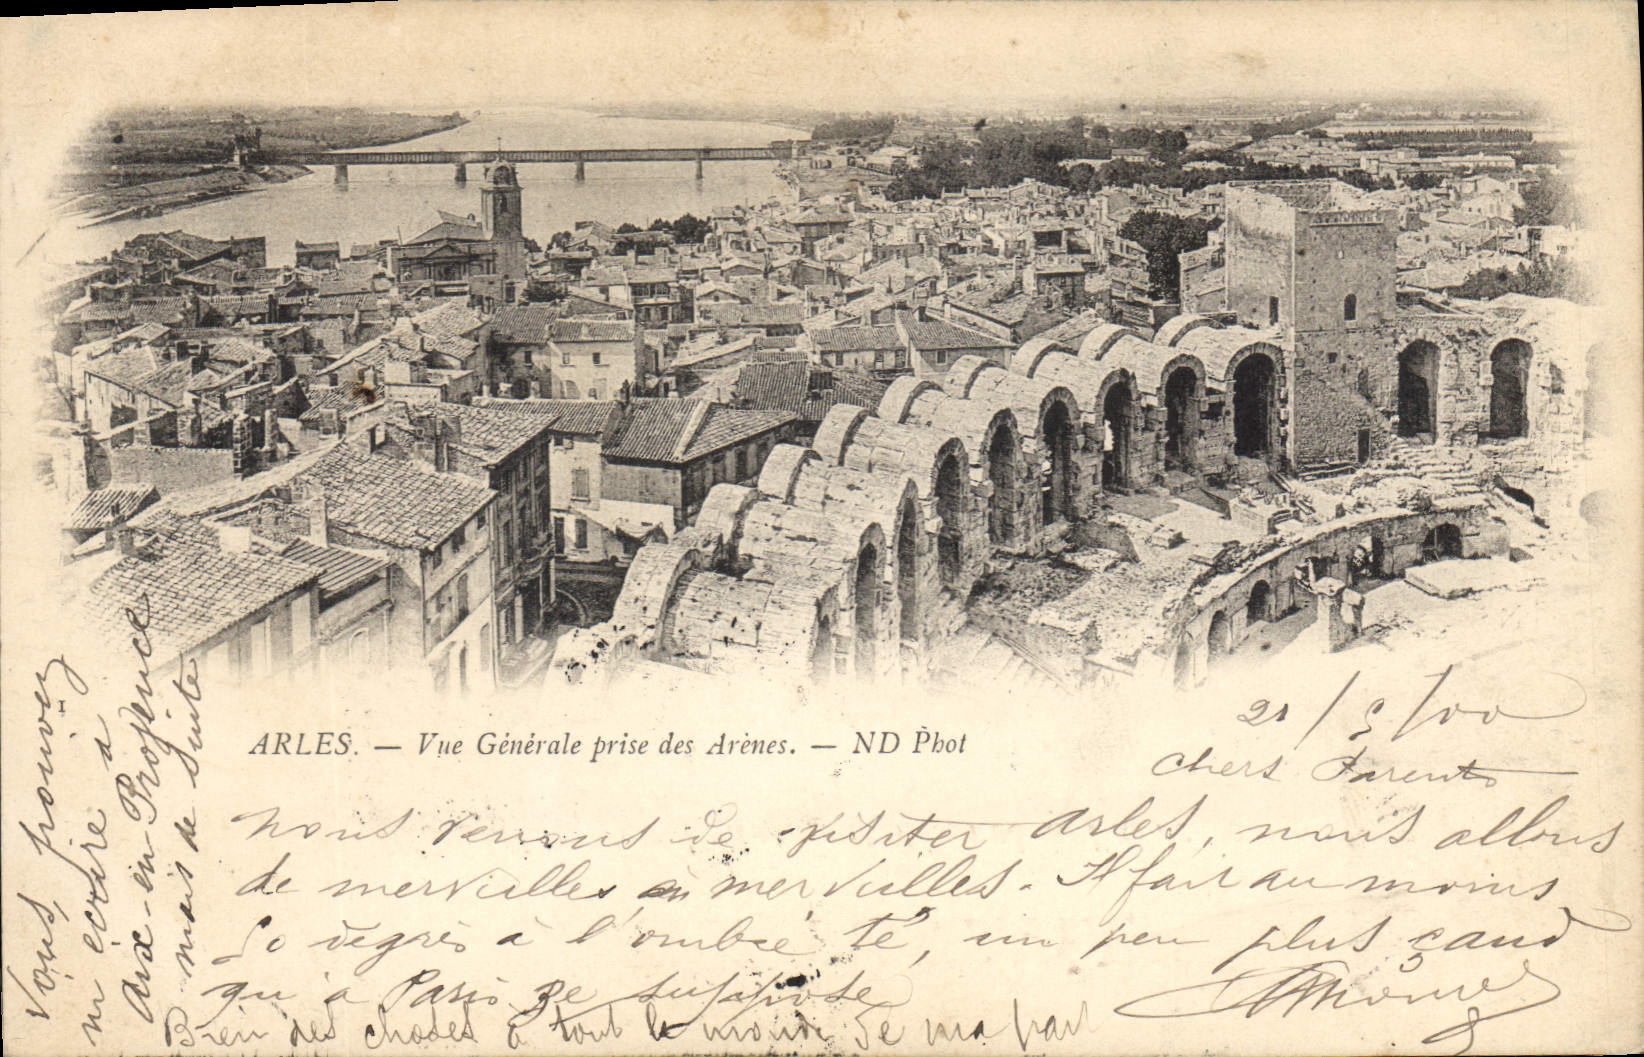 1
ARLES. — Vue Générale prise des Arènes. — ND Phot
21/9/00
Chers Parents
Nous venons de visiter Arles, nous allons
de mervielles en mervielles. Il fait au moins
50 degrès à l'ombre té, un peu plus caud
qu'à Paris je suppose
Bien des choses à tout le monde de ma part
Vous pouvez
m'écrire à
Aix-en-Provence
mais de suite